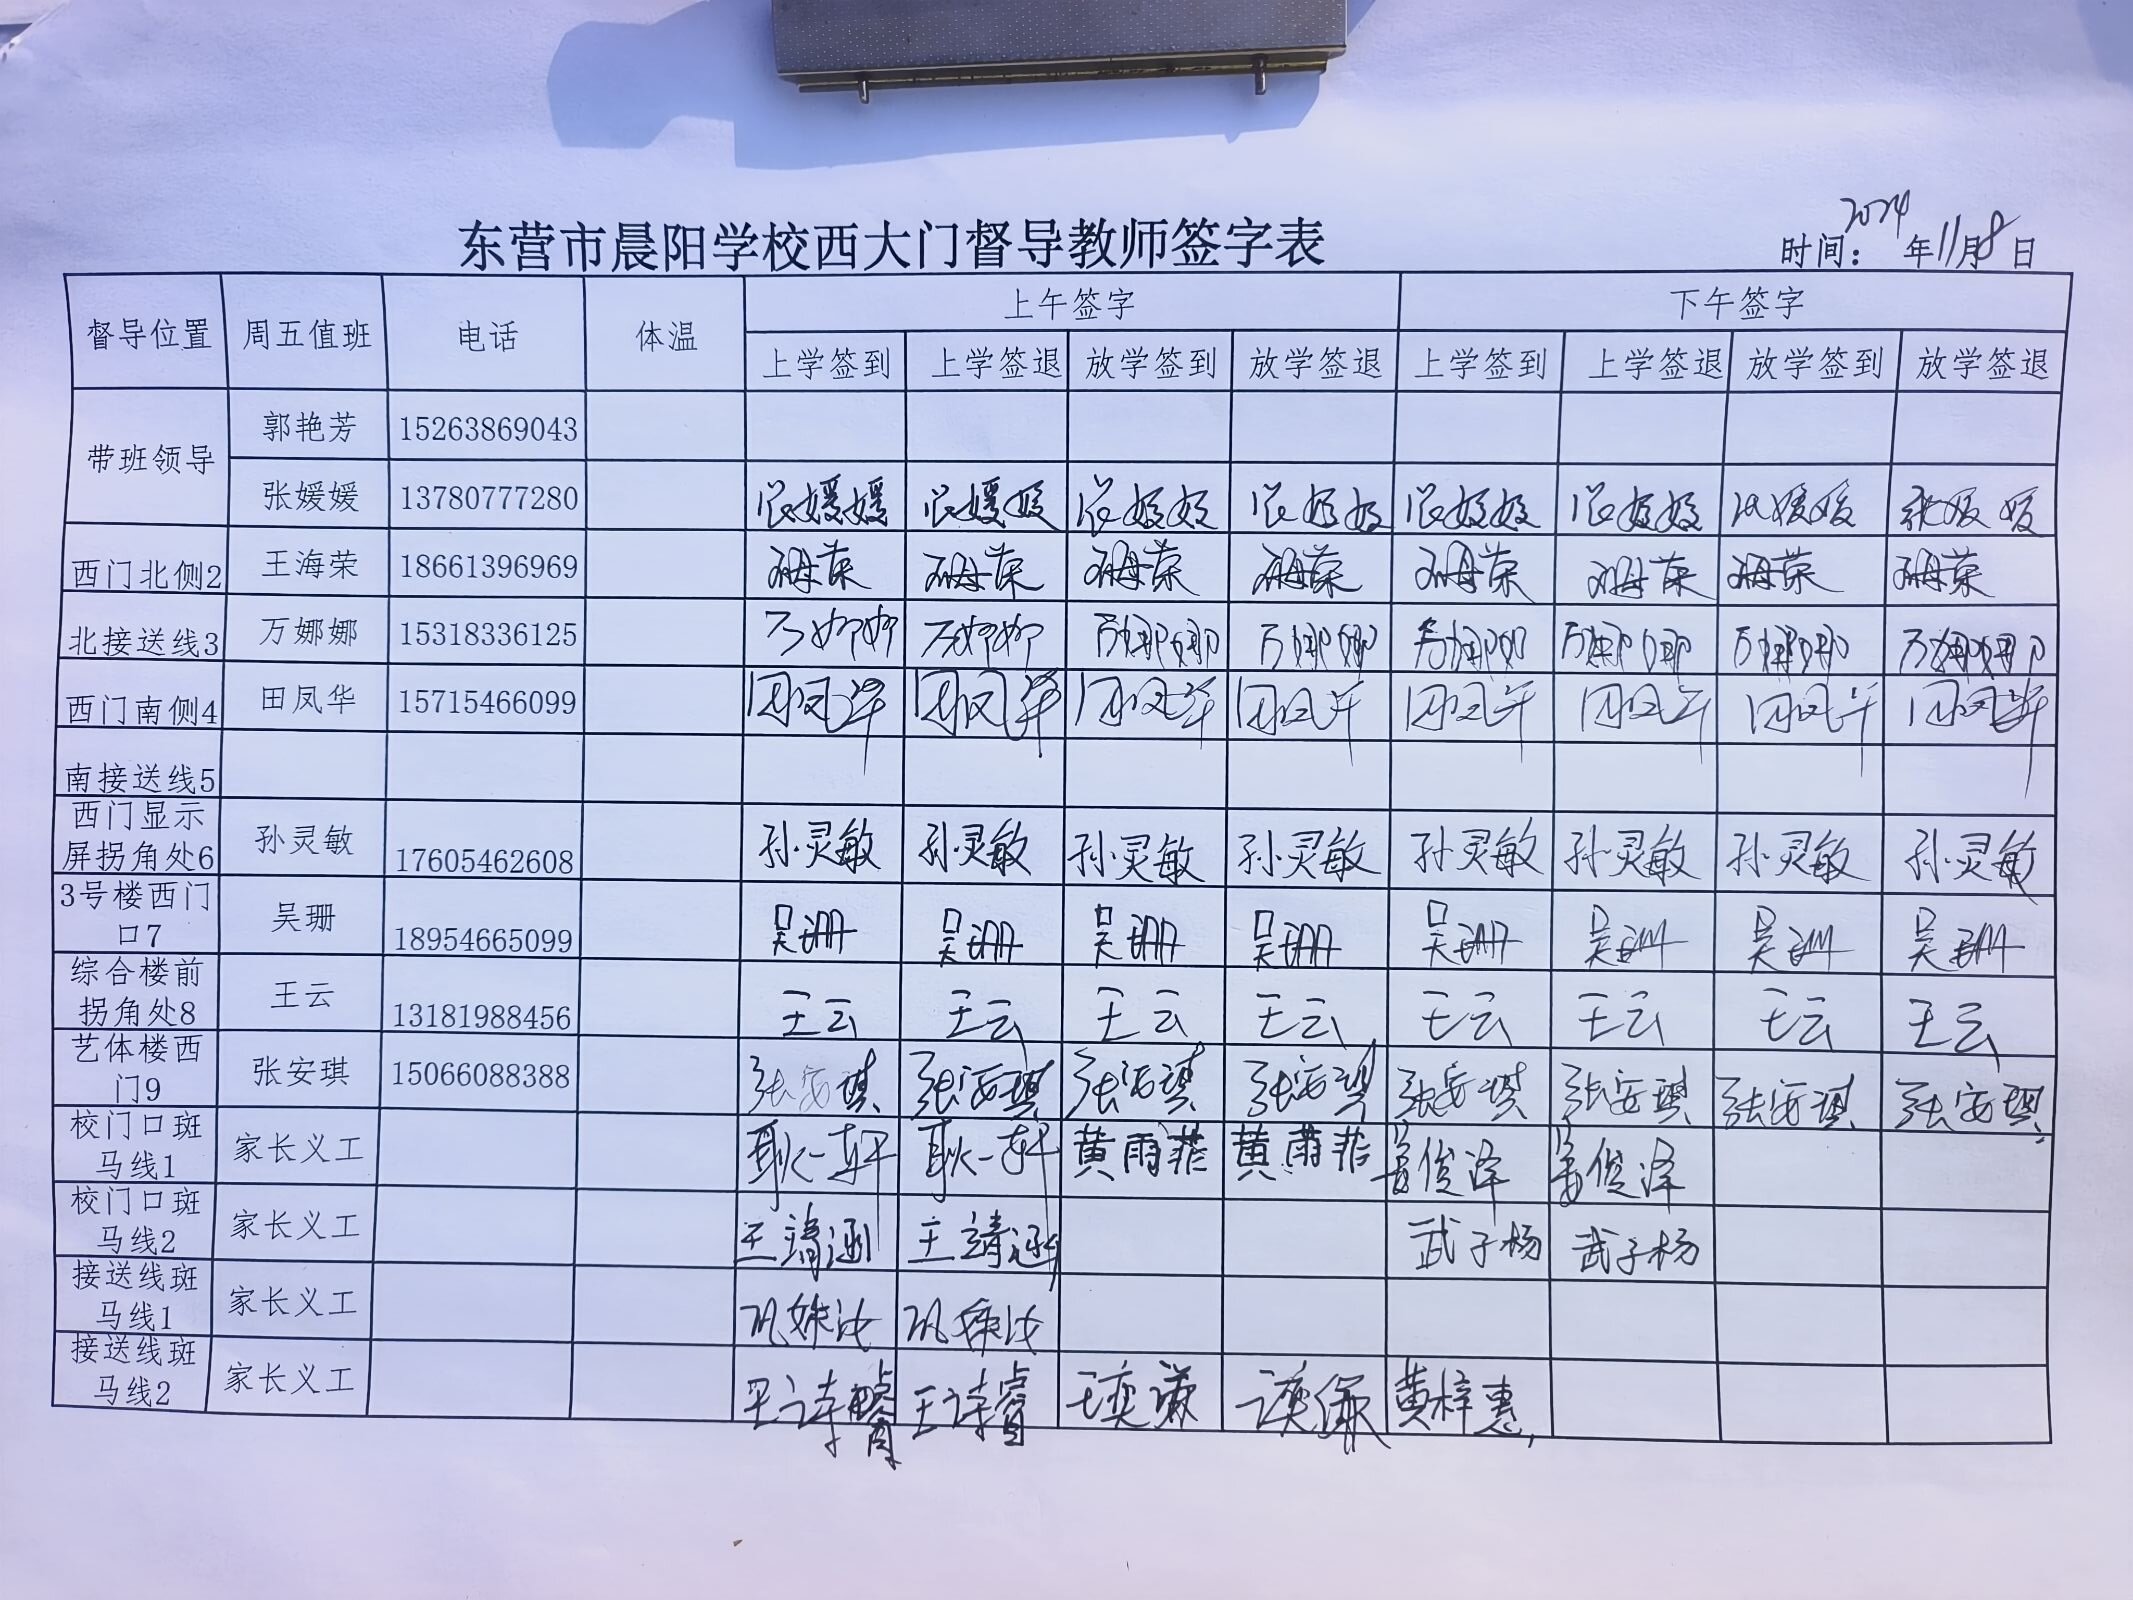 东营市晨阳学校西大门督导教师签字表
时间： 2024 年 11 月 8 日
督导位置 周五值班 电话 体温 上午签字 下午签字
上学签到 上学签退 放学签到 放学签退 上学签到 上学签退 放学签到 放学签退
带班领导
郭艳芳 15263869043
张媛媛 13780777280 张媛媛 张媛媛 张媛媛 张媛媛 张媛媛 张媛媛 张媛媛 张媛媛
西门北侧2 王海荣 18661396969 王海荣 王海荣 王海荣 王海荣 王海荣 王海荣 王海荣 王海荣
北接送线3 万娜娜 15318336125 万娜娜 万娜娜 万娜娜 万娜娜 万娜娜 万娜娜 万娜娜 万娜娜
西门南侧4 田凤华 15715466099 田凤华 田凤华 田凤华 田凤华 田凤华 田凤华 田凤华 田凤华
南接送线5
西门显示
屏拐角处6 孙灵敏 17605462608 孙灵敏 孙灵敏 孙灵敏 孙灵敏 孙灵敏 孙灵敏 孙灵敏 孙灵敏
3号楼西门
口7 吴珊 18954665099 吴珊 吴珊 吴珊 吴珊 吴珊 吴珊 吴珊 吴珊
综合楼前
拐角处8 王云 13181988456 王云 王云 王云 王云 王云 王云 王云 王云
艺体楼西
门9 张安琪 15066088388 张安琪 张安琪 张安琪 张安琪 张安琪 张安琪 张安琪 张安琪
校门口斑
马线1 家长义工 耿一轩 耿一轩 黄雨菲 黄雨菲
校门口斑
马线2 家长义工 王靖涵 王靖涵 武子杨 武子杨
接送线斑
马线1 家长义工
接送线斑
马线2 家长义工 王诗睿 王诗睿 黄梓惠